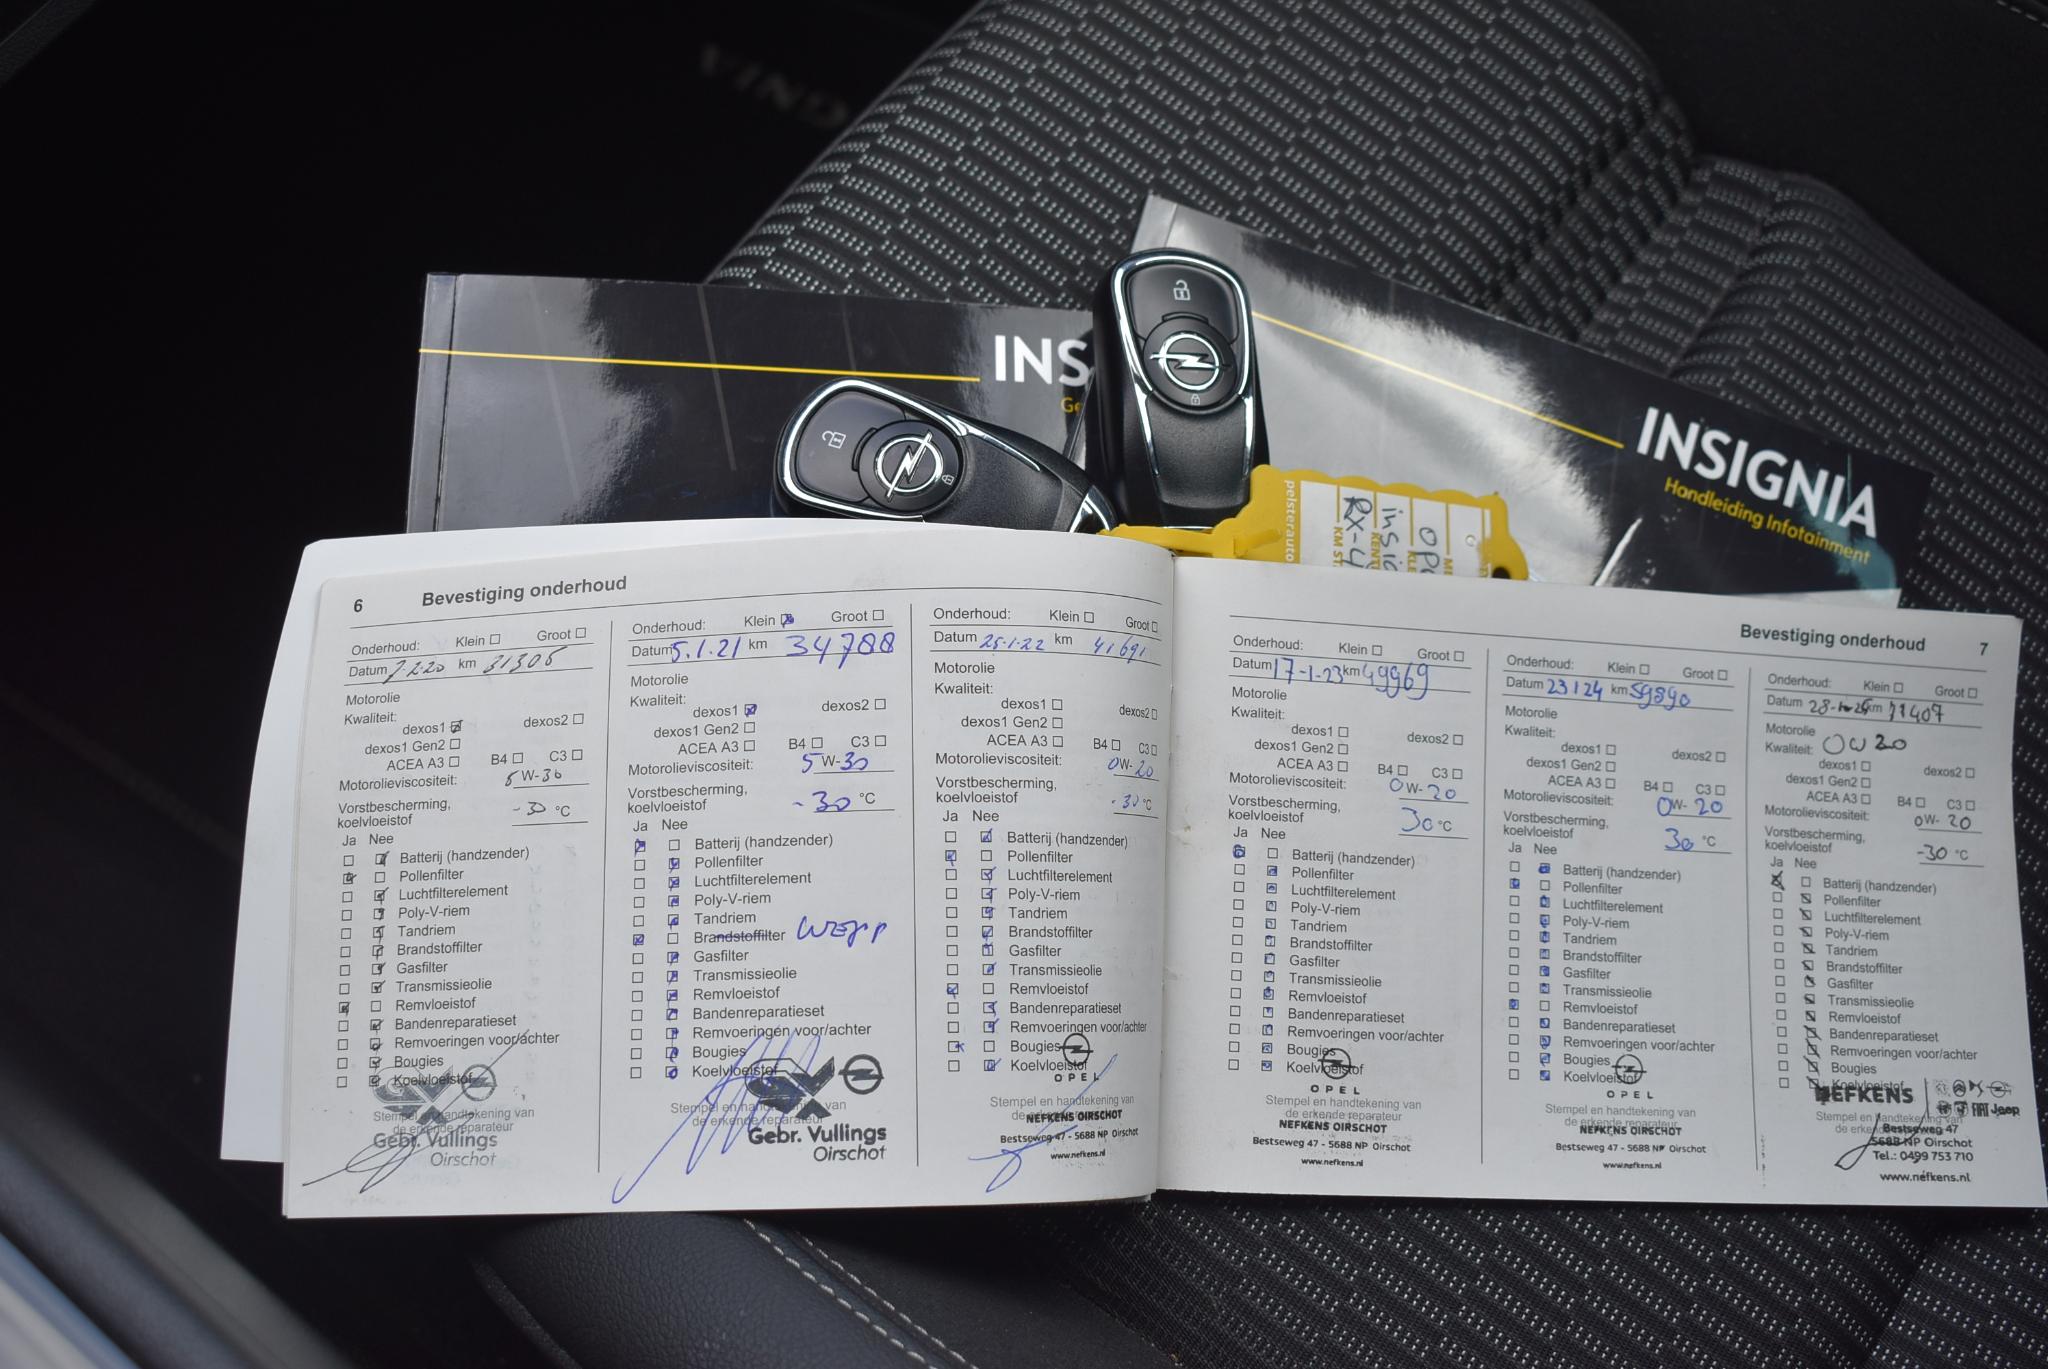 INSIGNIA
Handleiding Infotainment
INS
Ge
GNIA
pelsterauto
6 Bevestiging onderhoud
Onderhoud: Klein ☐ Groot ☐
Datum 7-2-20 km 31306
Motorolie
Kwaliteit:
dexos1 dexos2
dexos1 Gen2
ACEA A3 B4 C3
Motorolieviscositeit: 5 W-30
Vorstbescherming,
koelvloeistof -30 °C
Ja Nee
Batterij (handzender)
Pollenfilter
Luchtfilterelement
Poly-V-riem
Tandriem
Brandstoffilter
Gasfilter
Transmissieolie
Remvloeistof
Bandenreparatieset
Remvoeringen voor/achter
Bougies
Koelvloeistof
Stempel en handtekening van
de erkende reparateur
Gebr. Vullings
Oirschot
Onderhoud: Klein Groot
Datum 5.1.21 km 34788
Motorolie
Kwaliteit:
dexos1 dexos2
dexos1 Gen2
ACEA A3 B4 C3
Motorolieviscositeit: 5 W-30
Vorstbescherming,
koelvloeistof -30 °C
Ja Nee
Batterij (handzender)
Pollenfilter
Luchtfilterelement
Poly-V-riem
Tandriem
Brandstoffilter
Gasfilter
Transmissieolie
Remvloeistof
Bandenreparatieset
Remvoeringen voor/achter
Bougies
Koelvloeistof
Stempel en handtekening van
de erkende reparateur
Gebr. Vullings
Oirschot
Onderhoud: Klein Groot
Datum 25-1-22 km 41691
Motorolie
Kwaliteit:
dexos1
dexos1 Gen2 dexos2
ACEA A3 B4 C3
Motorolieviscositeit: 0W-20
Vorstbescherming,
koelvloeistof -30 °C
Ja Nee
Batterij (handzender)
Pollenfilter
Luchtfilterelement
Poly-V-riem
Tandriem
Brandstoffilter
Gasfilter
Transmissieolie
Remvloeistof
Bandenreparatieset
Remvoeringen voor/achter
Bougies
Koelvloeistof
OPEL
Stempel en handtekening van
NEFKENS OIRSCHOT
Bestseweg 47 - 5688 NP Oirschot
www.nefkens.nl
Bevestiging onderhoud 7
Onderhoud: Klein Groot
Datum 17-1-23 km 49969
Motorolie
Kwaliteit:
dexos1 dexos2
dexos1 Gen2
ACEA A3 B4 C3
Motorolieviscositeit: 0W-20
Vorstbescherming,
koelvloeistof 30 °C
Ja Nee
Batterij (handzender)
Pollenfilter
Luchtfilterelement
Poly-V-riem
Tandriem
Brandstoffilter
Gasfilter
Transmissieolie
Remvloeistof
Bandenreparatieset
Remvoeringen voor/achter
Bougies
Koelvloeistof
OPEL
Stempel en handtekening van
de erkende reparateur
NEFKENS OIRSCHOT
Bestseweg 47 - 5688 NP Oirschot
www.nefkens.nl
Onderhoud: Klein Groot
Datum 23 1 24 km 59890
Motorolie
Kwaliteit:
dexos1 dexos2
dexos1 Gen2
ACEA A3 B4 C3
Motorolieviscositeit: 0W-20
Vorstbescherming,
koelvloeistof 30 °C
Ja Nee
Batterij (handzender)
Pollenfilter
Luchtfilterelement
Poly-V-riem
Tandriem
Brandstoffilter
Gasfilter
Transmissieolie
Remvloeistof
Bandenreparatieset
Remvoeringen voor/achter
Bougies
Koelvloeistof
OPEL
Stempel en handtekening van
de erkende reparateur
NEFKENS OIRSCHOT
Bestseweg 47 - 5688 NP Oirschot
www.nefkens.nl
Onderhoud: Klein Groot
Datum km
Motorolie
Kwaliteit: OW20
dexos1 dexos2
dexos1 Gen2
ACEA A3 B4 C3
Motorolieviscositeit: 0W-20
Vorstbescherming,
koelvloeistof -30 °C
Ja Nee
Batterij (handzender)
Pollenfilter
Luchtfilterelement
Poly-V-riem
Tandriem
Brandstoffilter
Gasfilter
Transmissieolie
Remvloeistof
Bandenreparatieset
Remvoeringen voor/achter
Bougies
Koelvloeistof
NEFKENS FIAT Jeep
Stempel en handtekening van
Bestseweg 47
5688 NP Oirschot
Tel.: 0499 753 710
www.nefkens.nl